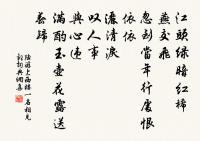 江頭綠暗紅稀
燕交飛
忽到當年行處恨
依依
灑清淚
歎人事
與心違
滿酌玉壺花露送
春歸
陸游上西樓一名相見
歡詞典網集